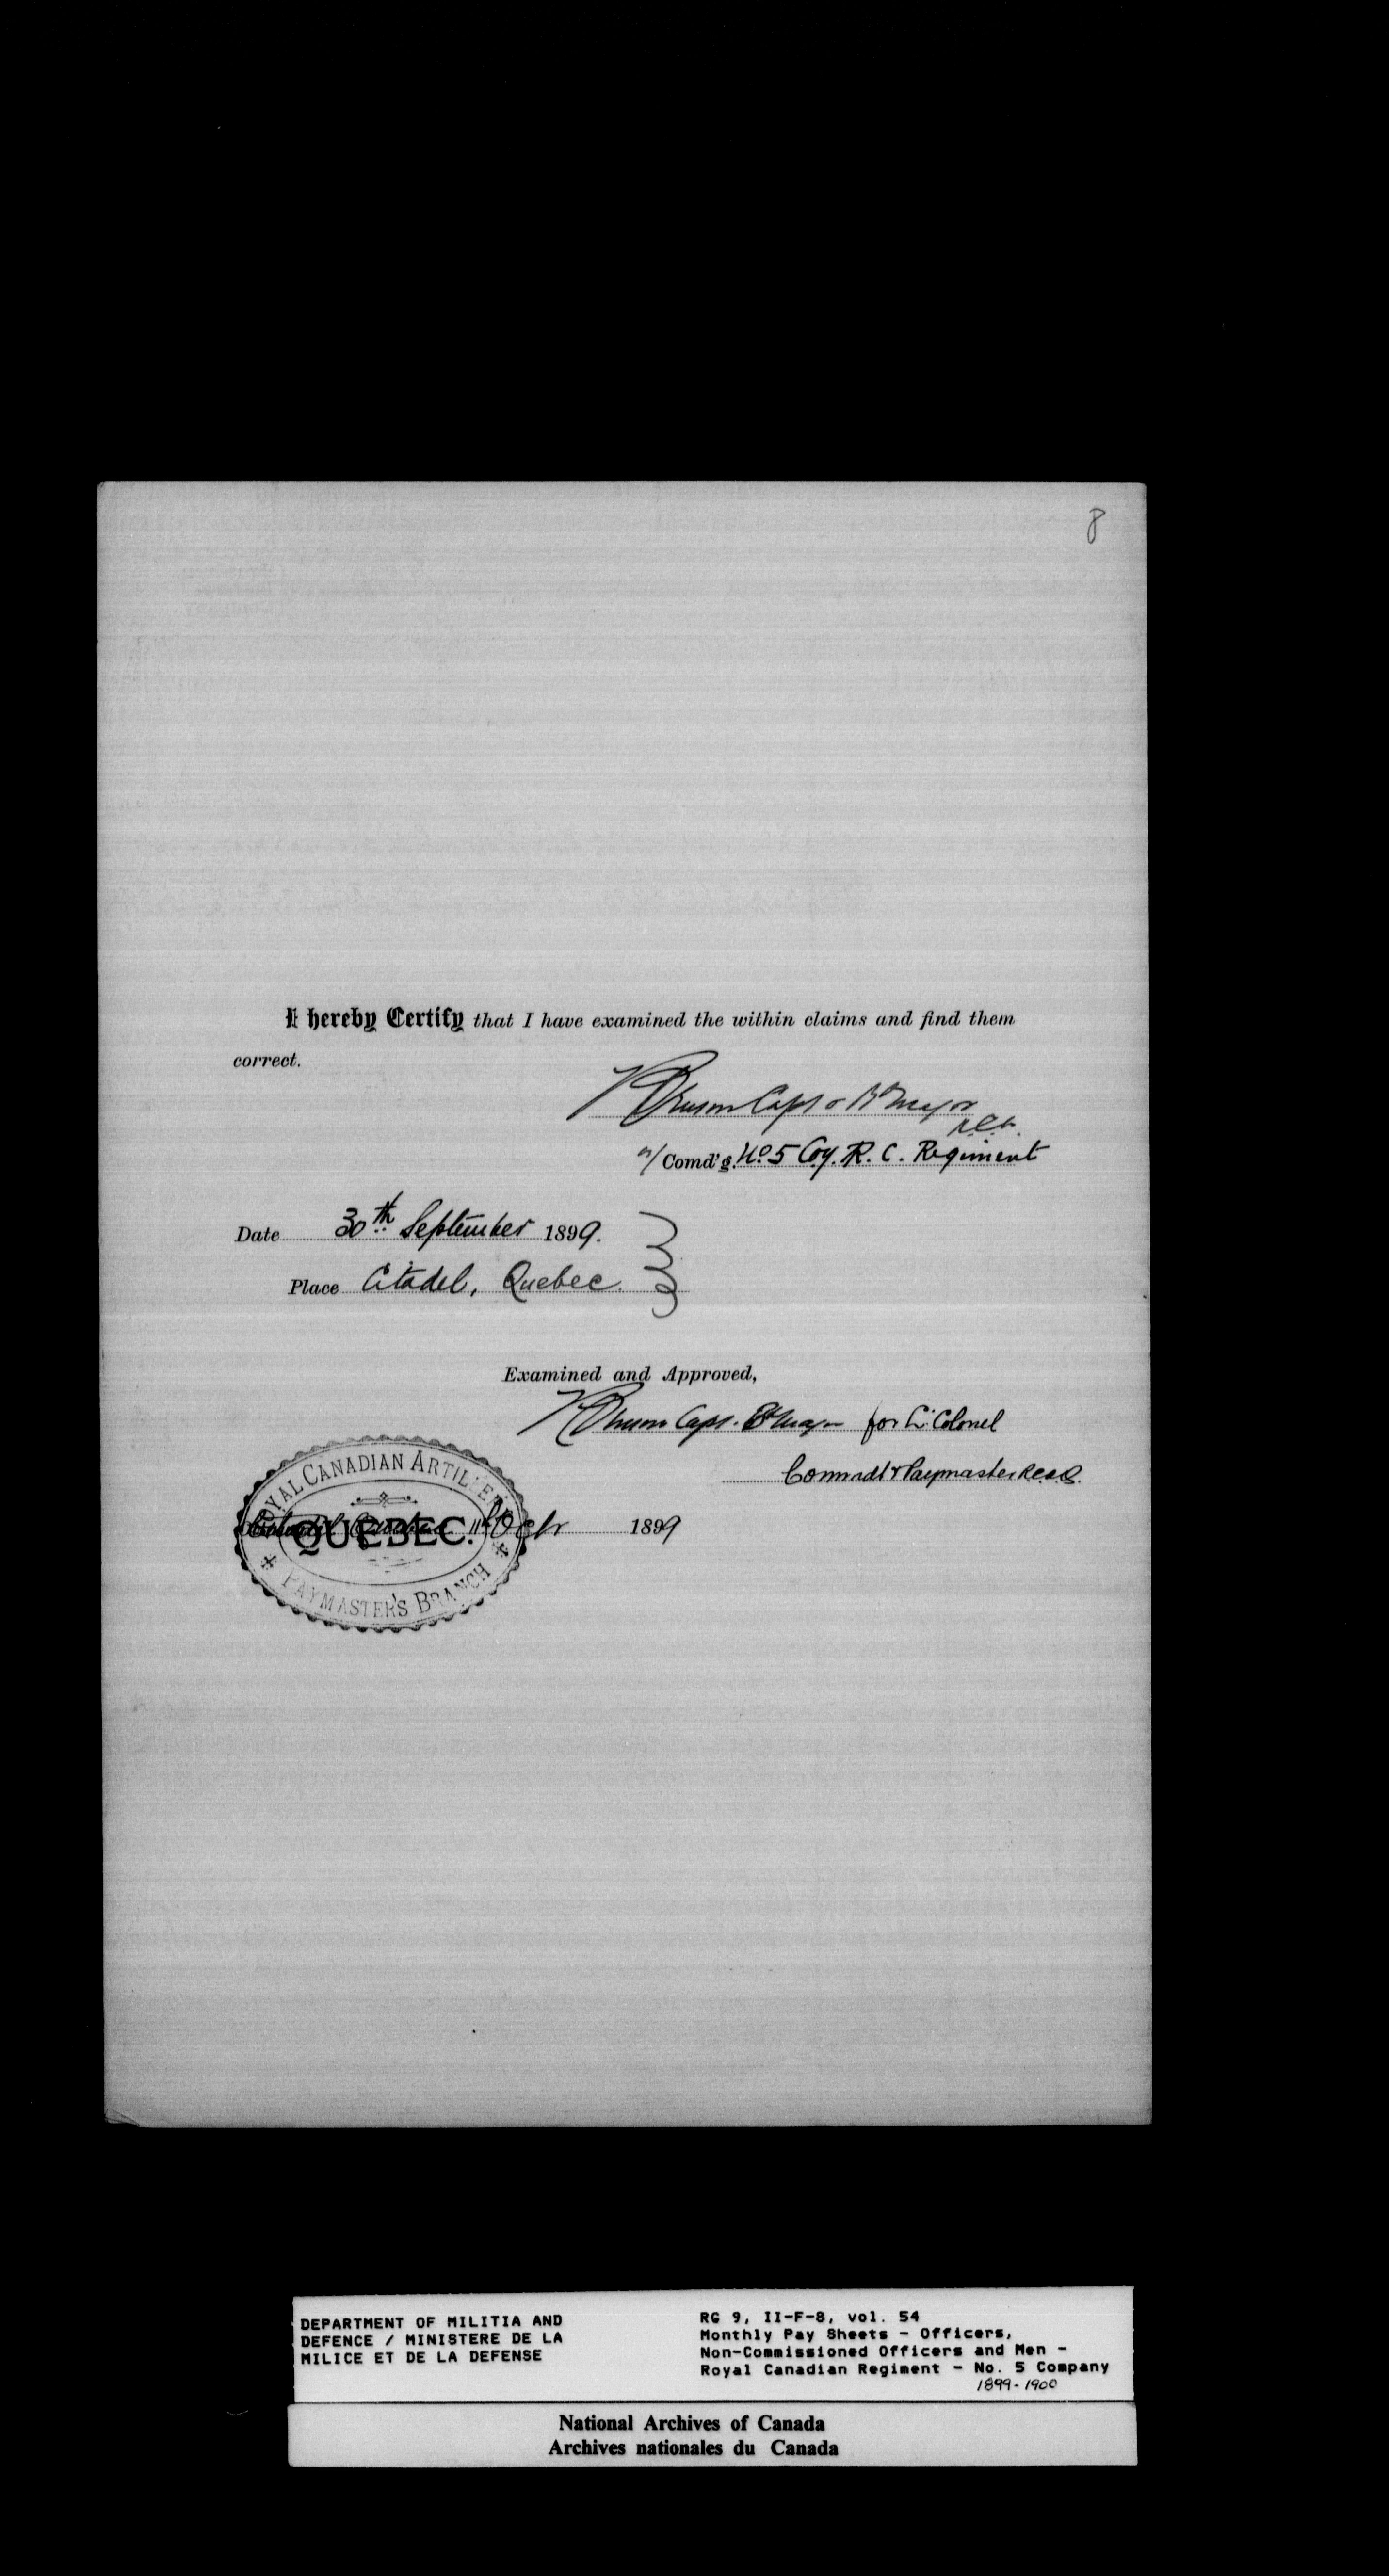 8
I hereby Certify that I have examined the within claims and find them
correct.
Capt & Bt Major
R.C.A.
Comd'g. No 5 Coy. R. C. Regiment
Date 30th September 1899.
Place Citadel, Quebec.
Examined and Approved,
Capt. Bt Major for Lt. Colonel
Commdt & Paymaster
ROYAL CANADIAN ARTILLERY
QUEBEC.
Octr 1899
PAYMASTER'S BRANCH
DEPARTMENT OF MILITIA AND
DEFENCE / MINISTERE DE LA
MILICE ET DE LA DEFENSE
RG 9, II-F-8, vol. 54
Monthly Pay Sheets - Officers,
Non-Commissioned Officers and Men -
Royal Canadian Regiment - No. 5 Company
1899-1900
National Archives of Canada
Archives nationales du Canada